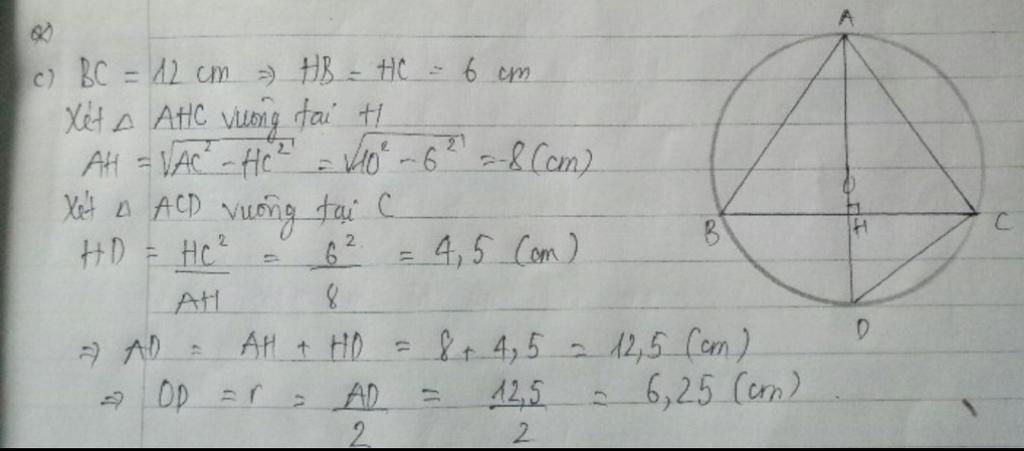 a)
c) BC = 12 cm ⇒ HB = HC = 6 cm
Xét △ AHC vuông tại H
AH = √AC² - HC² = √10² - 6² = 8 (cm)
Xét △ ACD vuông tại C
HD = HC²/AH = 6²/8 = 4,5 (cm)
⇒ AD = AH + HD = 8 + 4,5 = 12,5 (cm)
⇒ OD = r = AD/2 = 12,5/2 = 6,25 (cm)
A
O
B
H
C
D